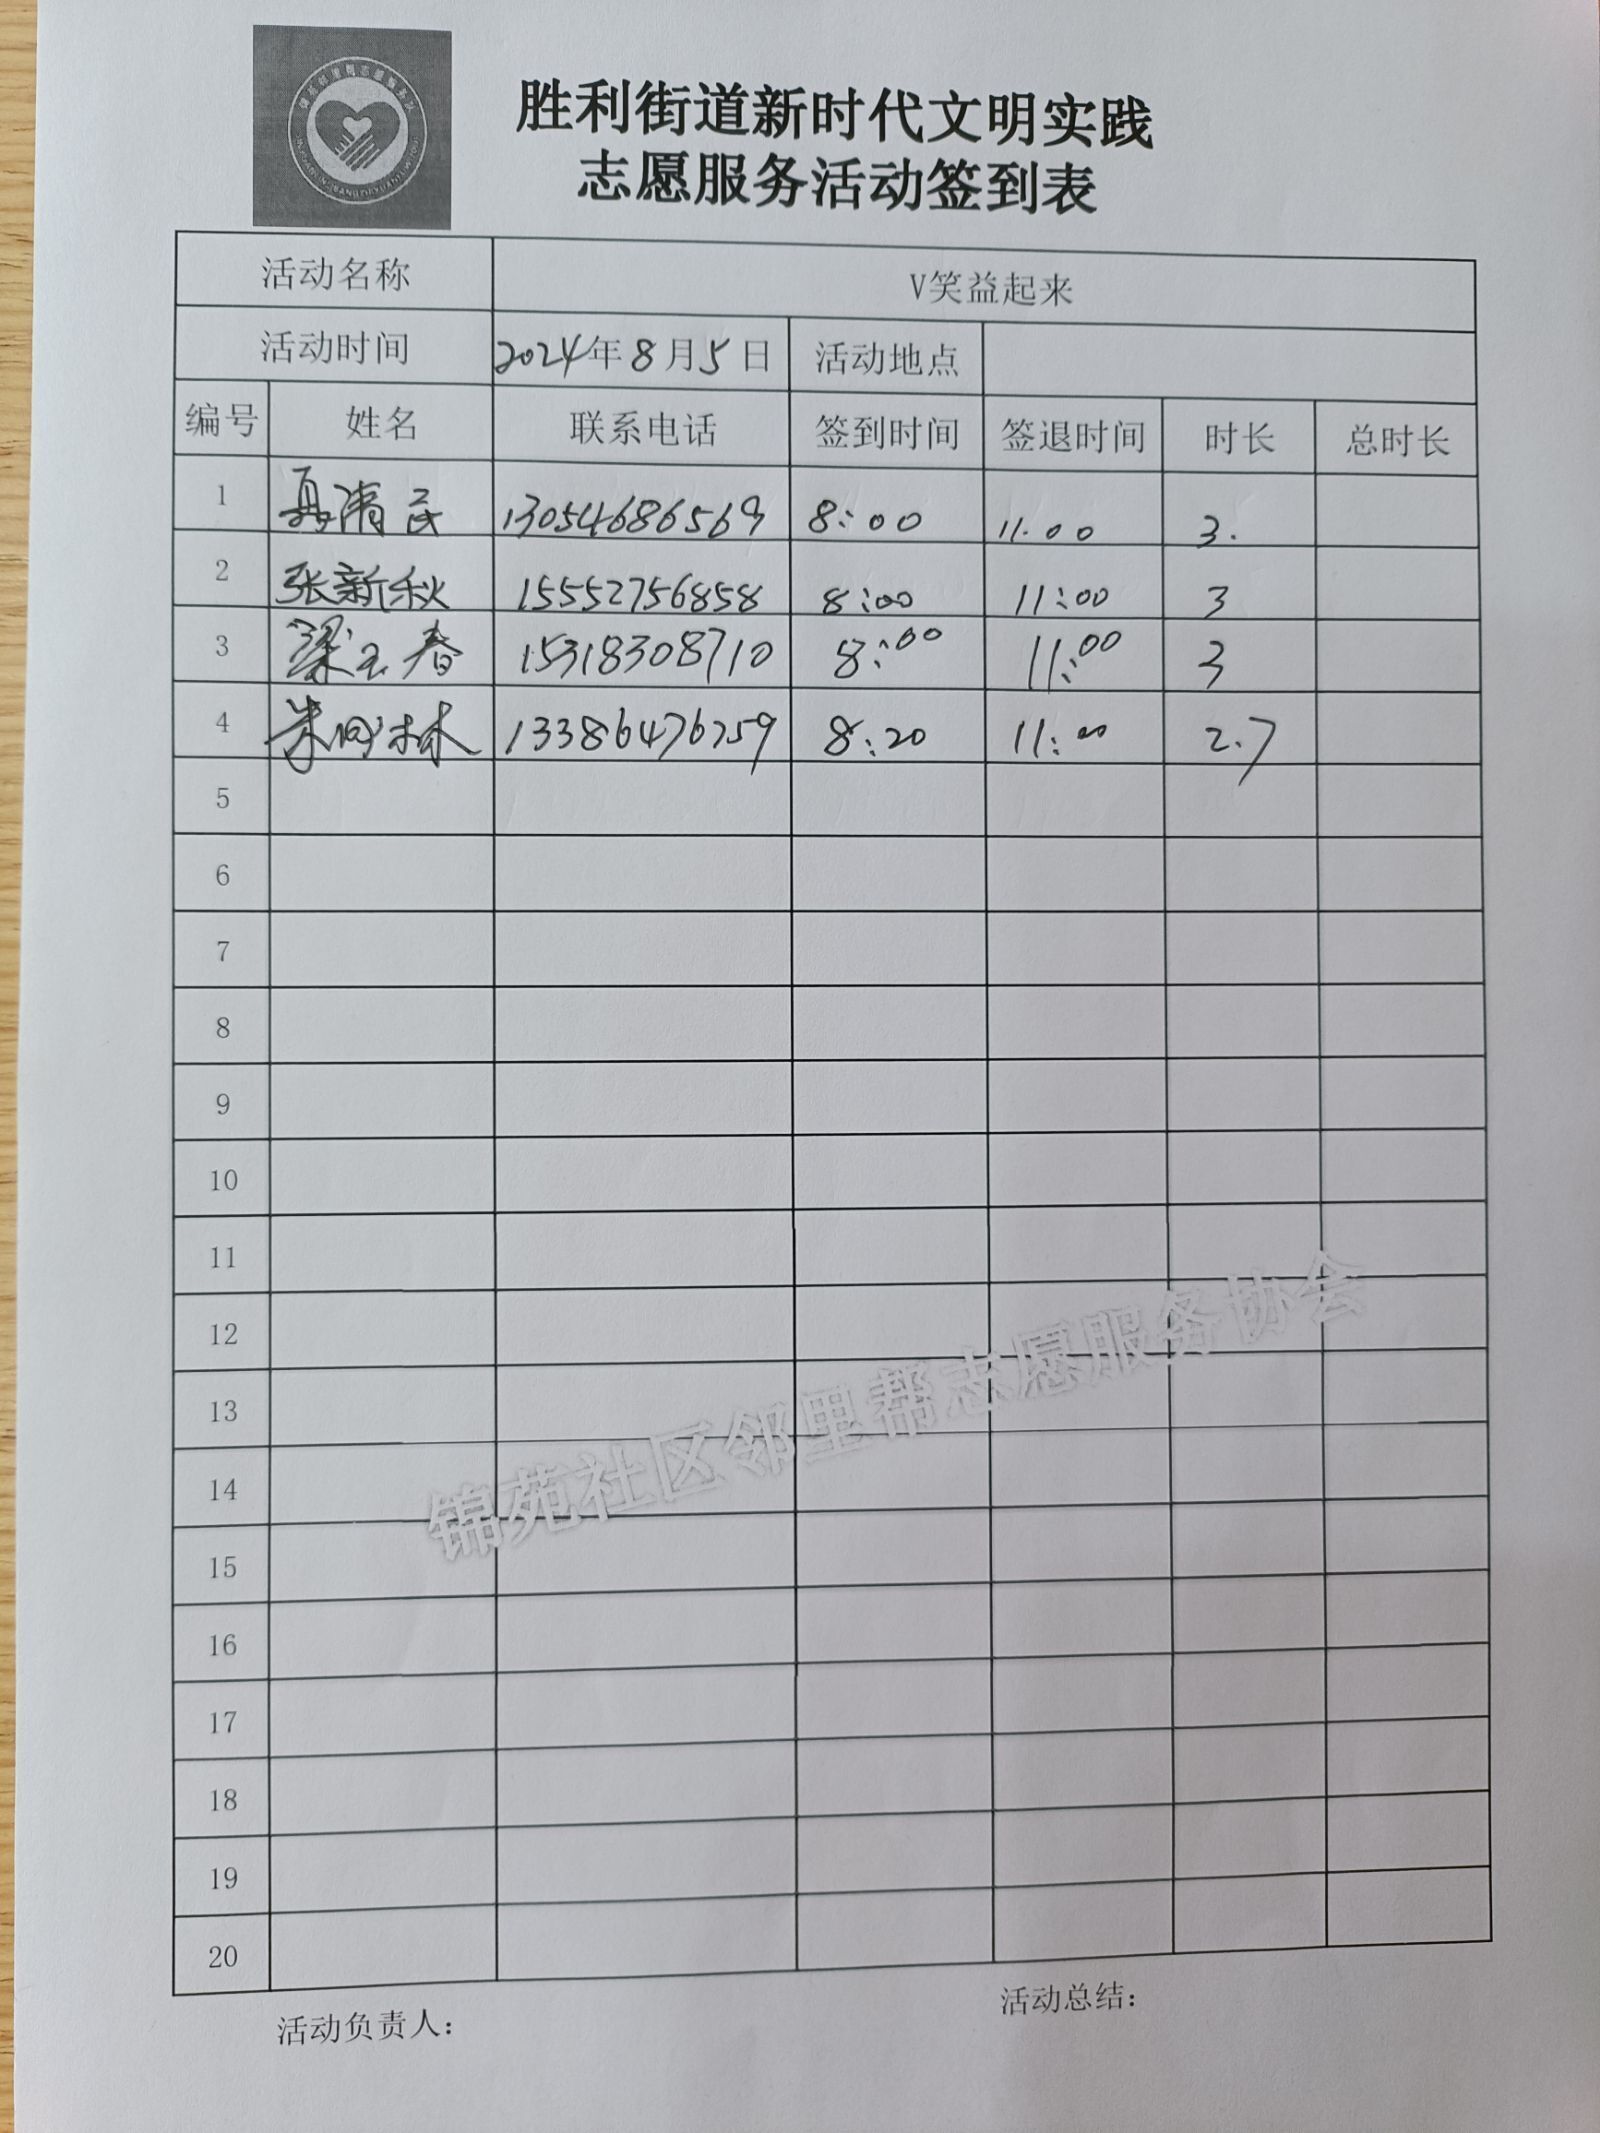 胜利街道新时代文明实践
志愿服务活动签到表
活动名称 V笑益起来
活动时间 2024年8月5日 活动地点
编号 姓名 联系电话 签到时间 签退时间 时长 总时长
1 清 13054686569 8:00 11.00 3.
2 张新秋 15552756858 8:00 11:00 3
3 梁玉春 15318308710 8:00 11:00 3
4 林 13386476259 8:20 11:00 2.7
5
6
7
8
9
10
11
12
13
14
15
16
17
18
19
20
锦苑社区邻里帮志愿服务协会
活动负责人: 活动总结: